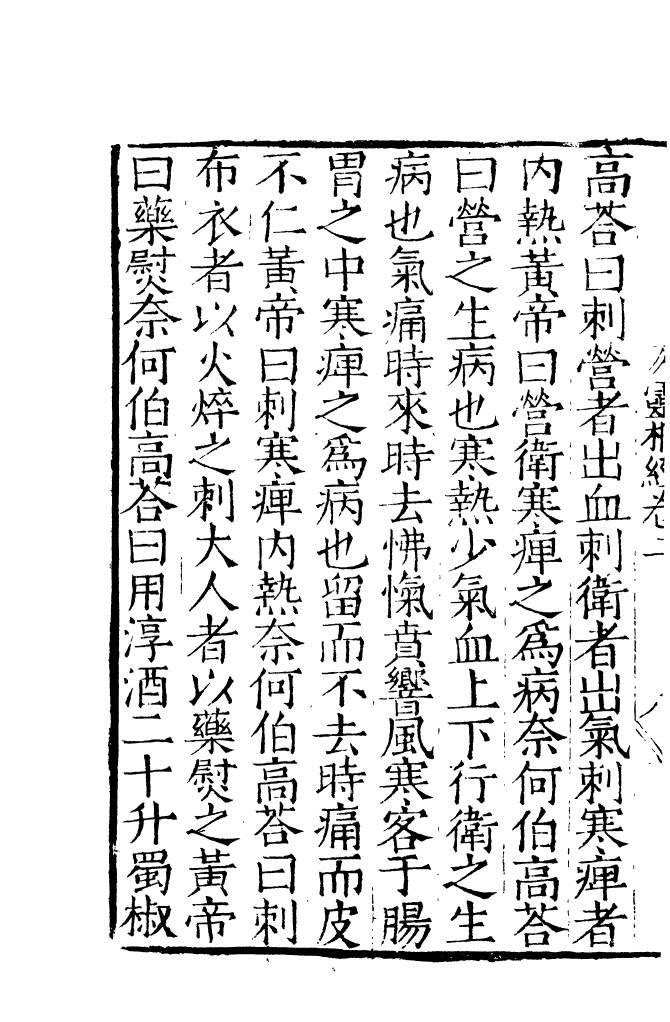 靈樞經卷二
高荅曰刺營者出血刺衛者出氣刺寒痺者
内熱黃帝曰營衛寒痺之爲病奈何伯高荅
曰營之生病也寒熱少氣血上下行衛之生
病也氣痛時來時去怫愾賁響風寒客于腸
胃之中寒痺之爲病也留而不去時痛而皮
不仁黃帝曰刺寒痺内熱奈何伯高荅曰刺
布衣者以火焠之刺大人者以藥熨之黃帝
曰藥熨奈何伯高荅曰用淳酒二十升蜀椒